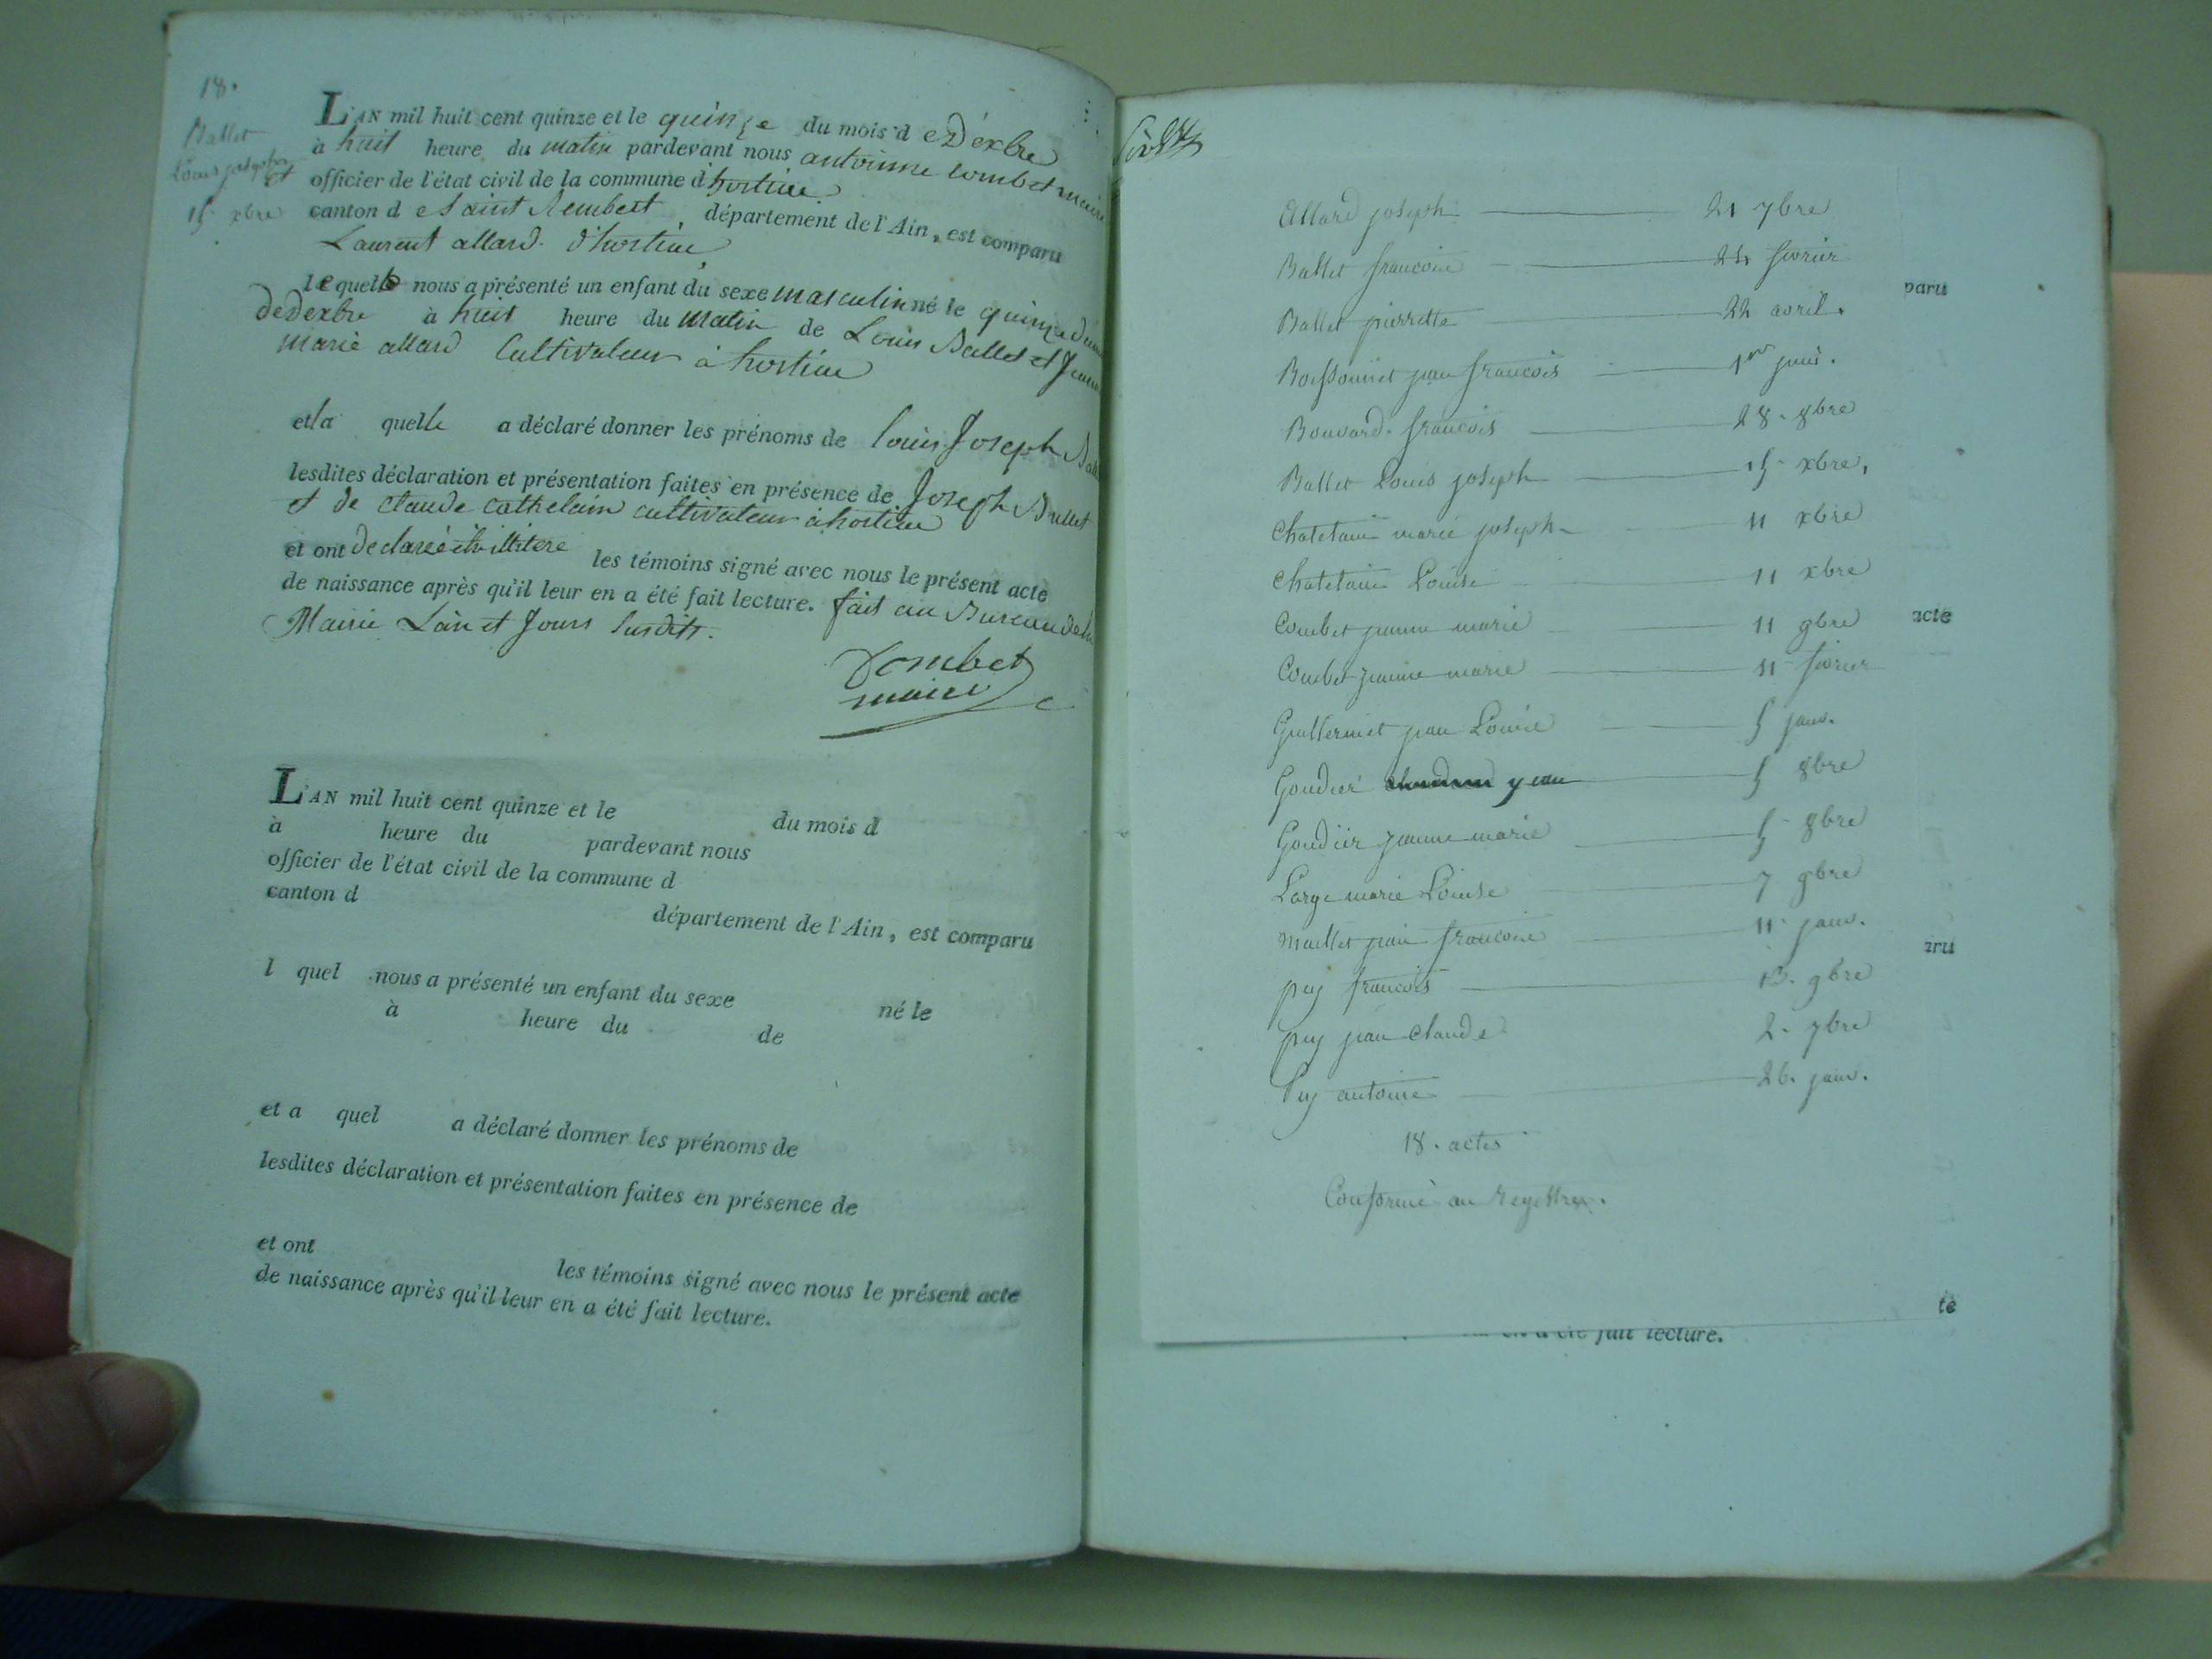 18.
Ballet
Louis joseph
15 xbre
L'AN mil huit cent quinze et le quinze du mois d e Dexbre
à huit heure du matin pardevant nous antoinne Combet maire
officier de l'état civil de la commune d'hostiau
canton d e Saint Rembert, département de l'Ain, est comparu
Laurent allard d'hostiau
lequelle nous a présenté un enfant du sexe masculin né le quinze du
de Dexbre à huit heure du matin de Louis Ballet et
marie allard Cultivateur à hostiau
et la quelle a déclaré donner les prénoms de louis Joseph
lesdites déclaration et présentation faites en présence de Joseph Ballet
et de Claude Cathelain cultivateur à hostiau
et ont declaré les témoins signé avec nous le présent acte
de naissance après qu'il leur en a été fait lecture. fait au Bureau de la
Mairie L'an et Jours Susdits.
Combet
maire
L'AN mil huit cent quinze et le du mois d
à heure du pardevant nous
officier de l'état civil de la commune d
canton d
département de l'Ain, est comparu
l quel nous a présenté un enfant du sexe né le
à heure du de
et a quel a déclaré donner les prénoms de
lesdites déclaration et présentation faites en présence de
et ont les témoins signé avec nous le présent acte
de naissance après qu'il leur en a été fait lecture.
Allard joseph 21 7bre
Ballet francoise 24 fevrier
Ballet pierrette 22 avril.
Boissonnet jean francois 1er
Bouvard francois 28. 8bre
Ballet Louis joseph 15 xbre.
Chatelain marie joseph 11 xbre
Chatelain Louise 11 xbre
Combet jeanne marie 11 9bre
Combet jeanne marie 11 fevrier
Guillermet jean Louis 5 janv.
Goudier jean 5 8bre
Goudier jeanne marie 5 8bre
Large marie Louise 7 9bre
Maillet francoise 11 janv.
puy francois 13. 9bre
puy jean claude 2. 7bre
Puy antoine 26. janv.
18. actes
Conforme au registre.
paru
acte
aru
te
été fait lecture.